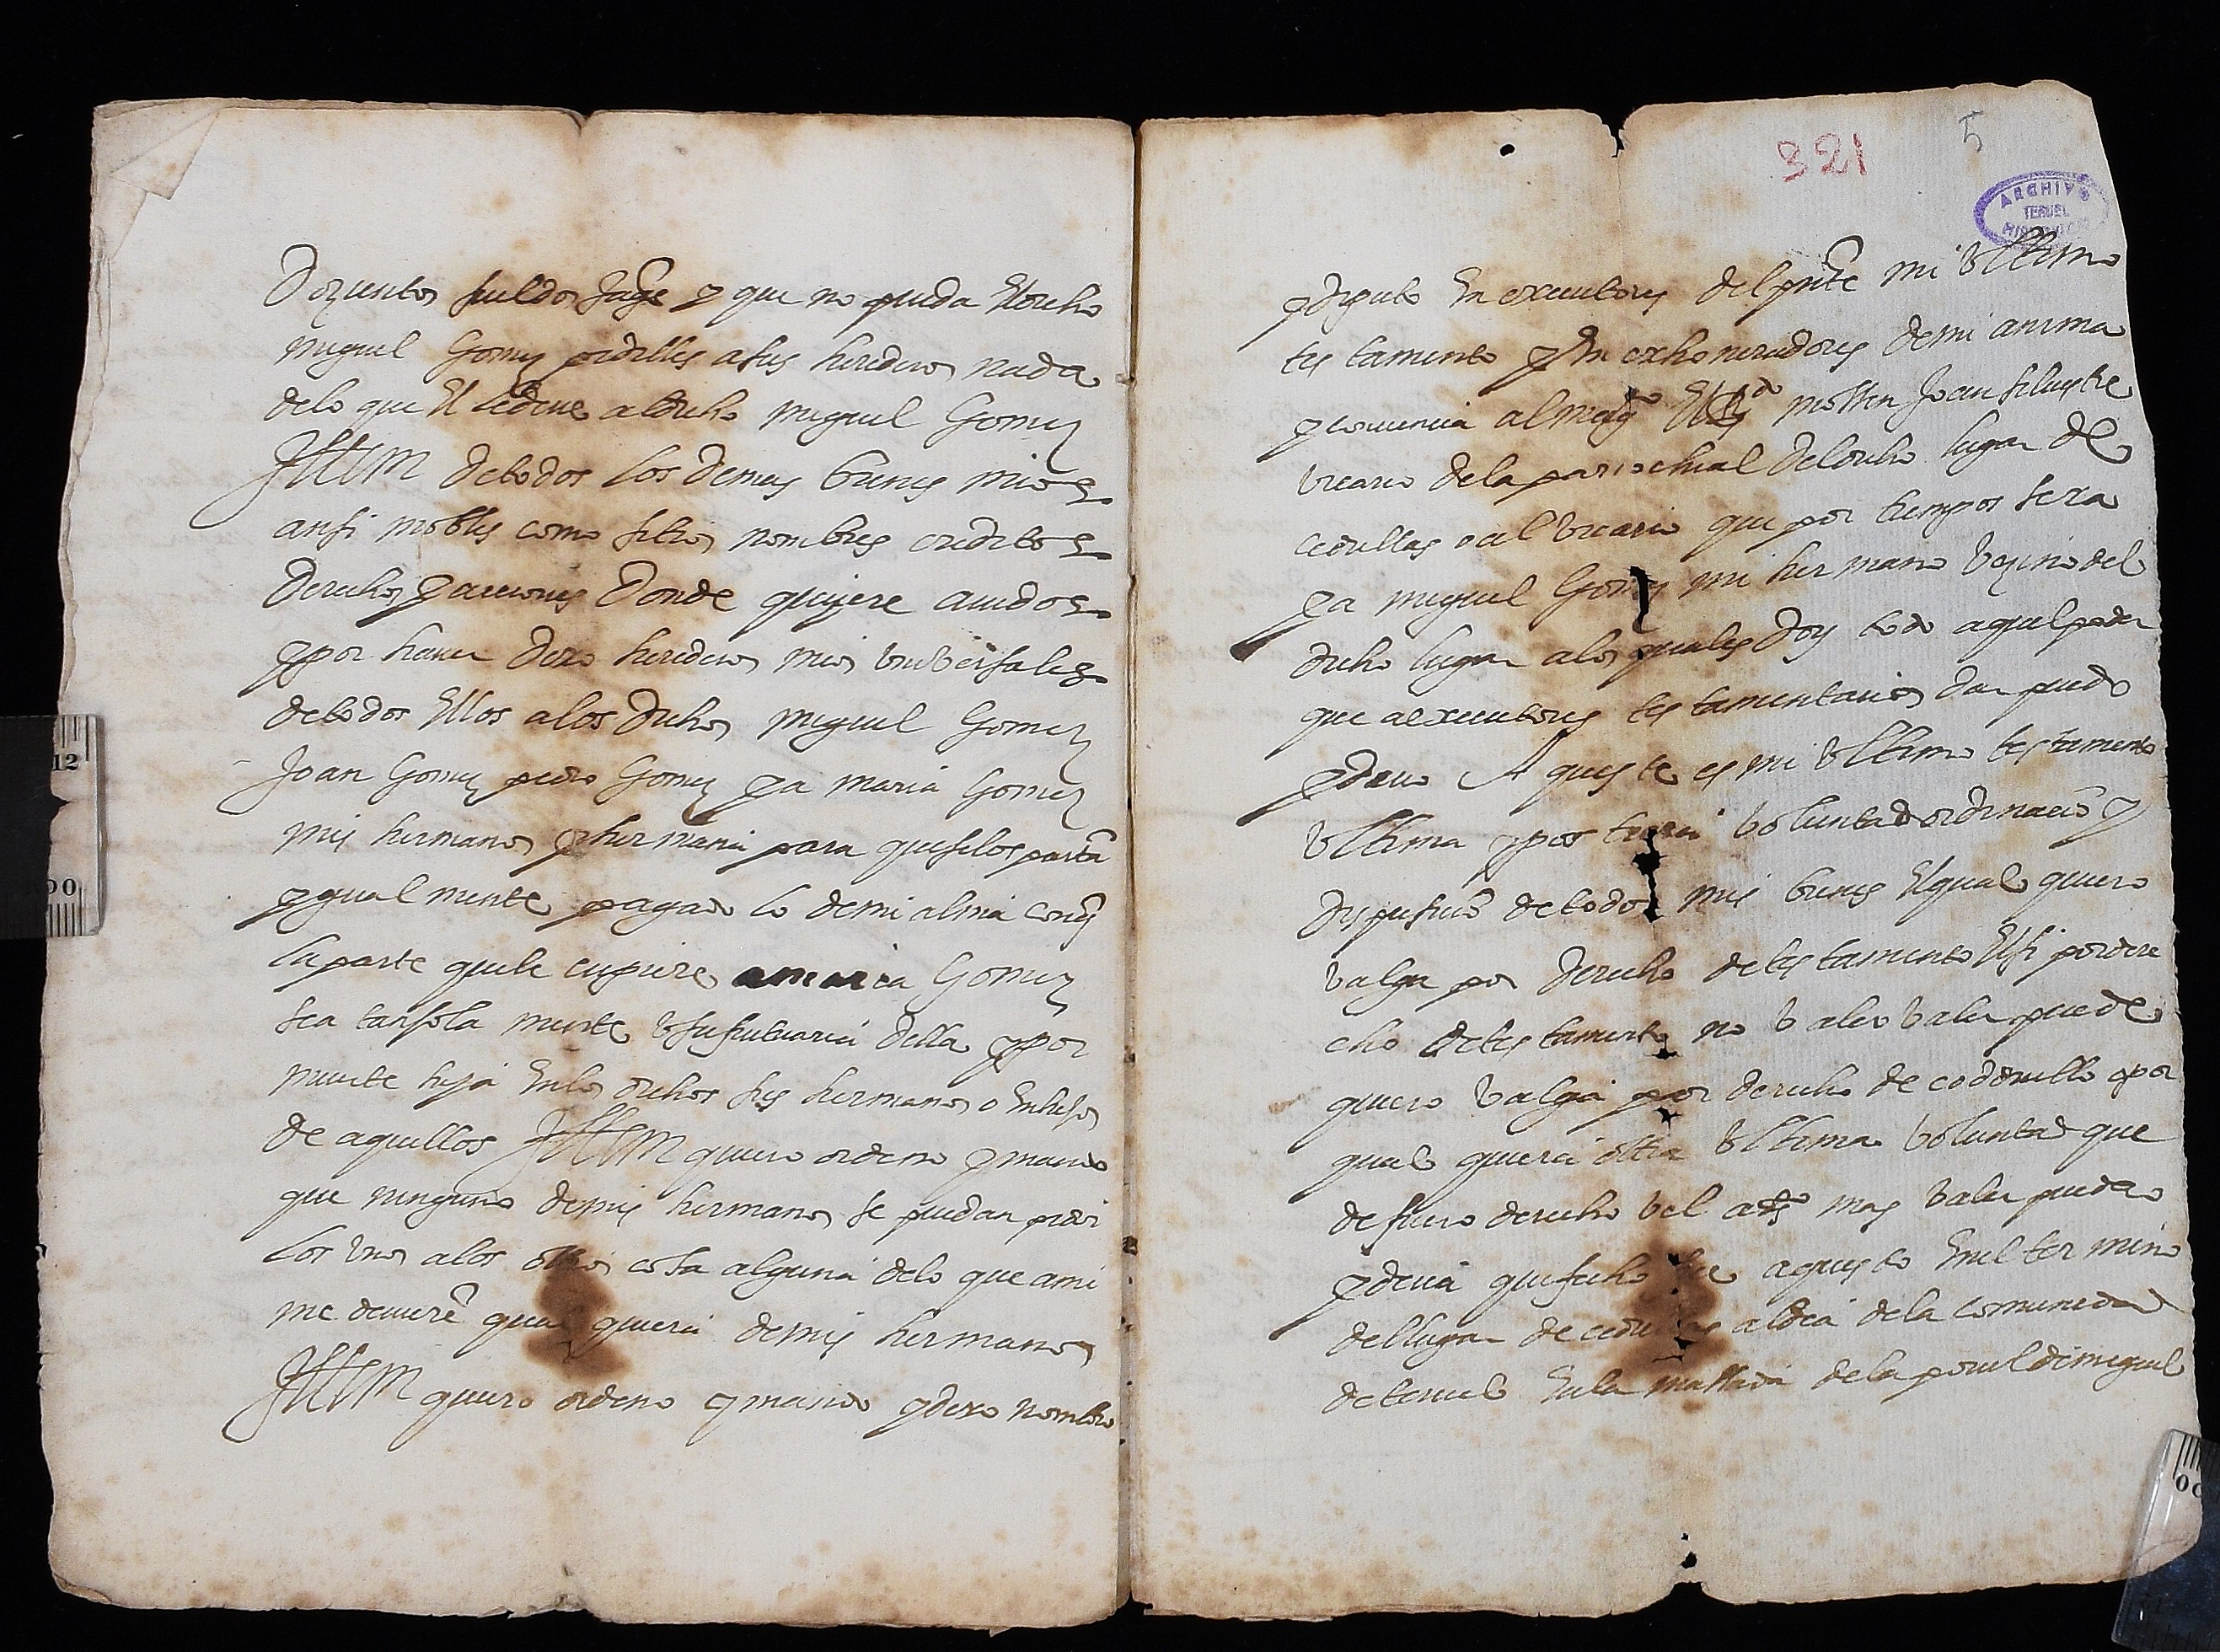 Dozientos sueldos Jaqs y que no pueda El dicho
miguel Gomez pidilles a sus herederos nada
delo que El le deve al dicho miguel Gomez
Ittem de todos los demas bienes mios
ansi mobles como sitios nombres creditos
Derechos y acciones Donde quiere avidos
y por haver Dexo herederos mios universales
de todos Ellos a los dichos miguel Gomez
Joan Gomez pedro Gomez y a maria Gomez
mis hermanos y hermana para que se los partā
ygual mente pagado lo de mi alma con q̄
la parte que le cupiere a maria Gomez
sea tan sola mente usufrutuaria della y por
muerte suya En los dichos sus hermanos o En hijos
de aquellos Ittem quiero ordeno y mando
que ninguno de mis hermanos se puedan pidir
los unos a los otros cosa alguna delo que a mi
me deuierē qual quiera de mis hermanos
Ittem quiero ordeno y mando y dexo nombro
321 5
ARCHIVO
TERUEL
y diputo En executores del pnte mi ultimo
tes tamento y En exhoneradores de mi anima
y conciencia al mossen Joan siluestre
vicario dela parrochial del dicho lugar de
cedrillas o al vicario que por tiempos sera
y a miguel Gomez mi hermano vezino del
dicho lugar a los quales doy todo aquel poder
que a executores tes tamentarios dar puedo
y devo Aques te es mi ultimo testamento
ultima y pos trera voluntad ordinaciō y
dispusiciō de todos mis bienes El qual quiero
valga por derecho de tes tamento El si por dere
cho de tes tamento no vale o valer puede
quiero valga por derecho de codicillo o por
qual quiera otra ultima voluntad que
de fuero derecho vel als mas valer pueda
y deva que fecho fue aquesto En el termino
del lugar de cedrillas aldea dela comunidad
de teruel En la massada dela de miguel